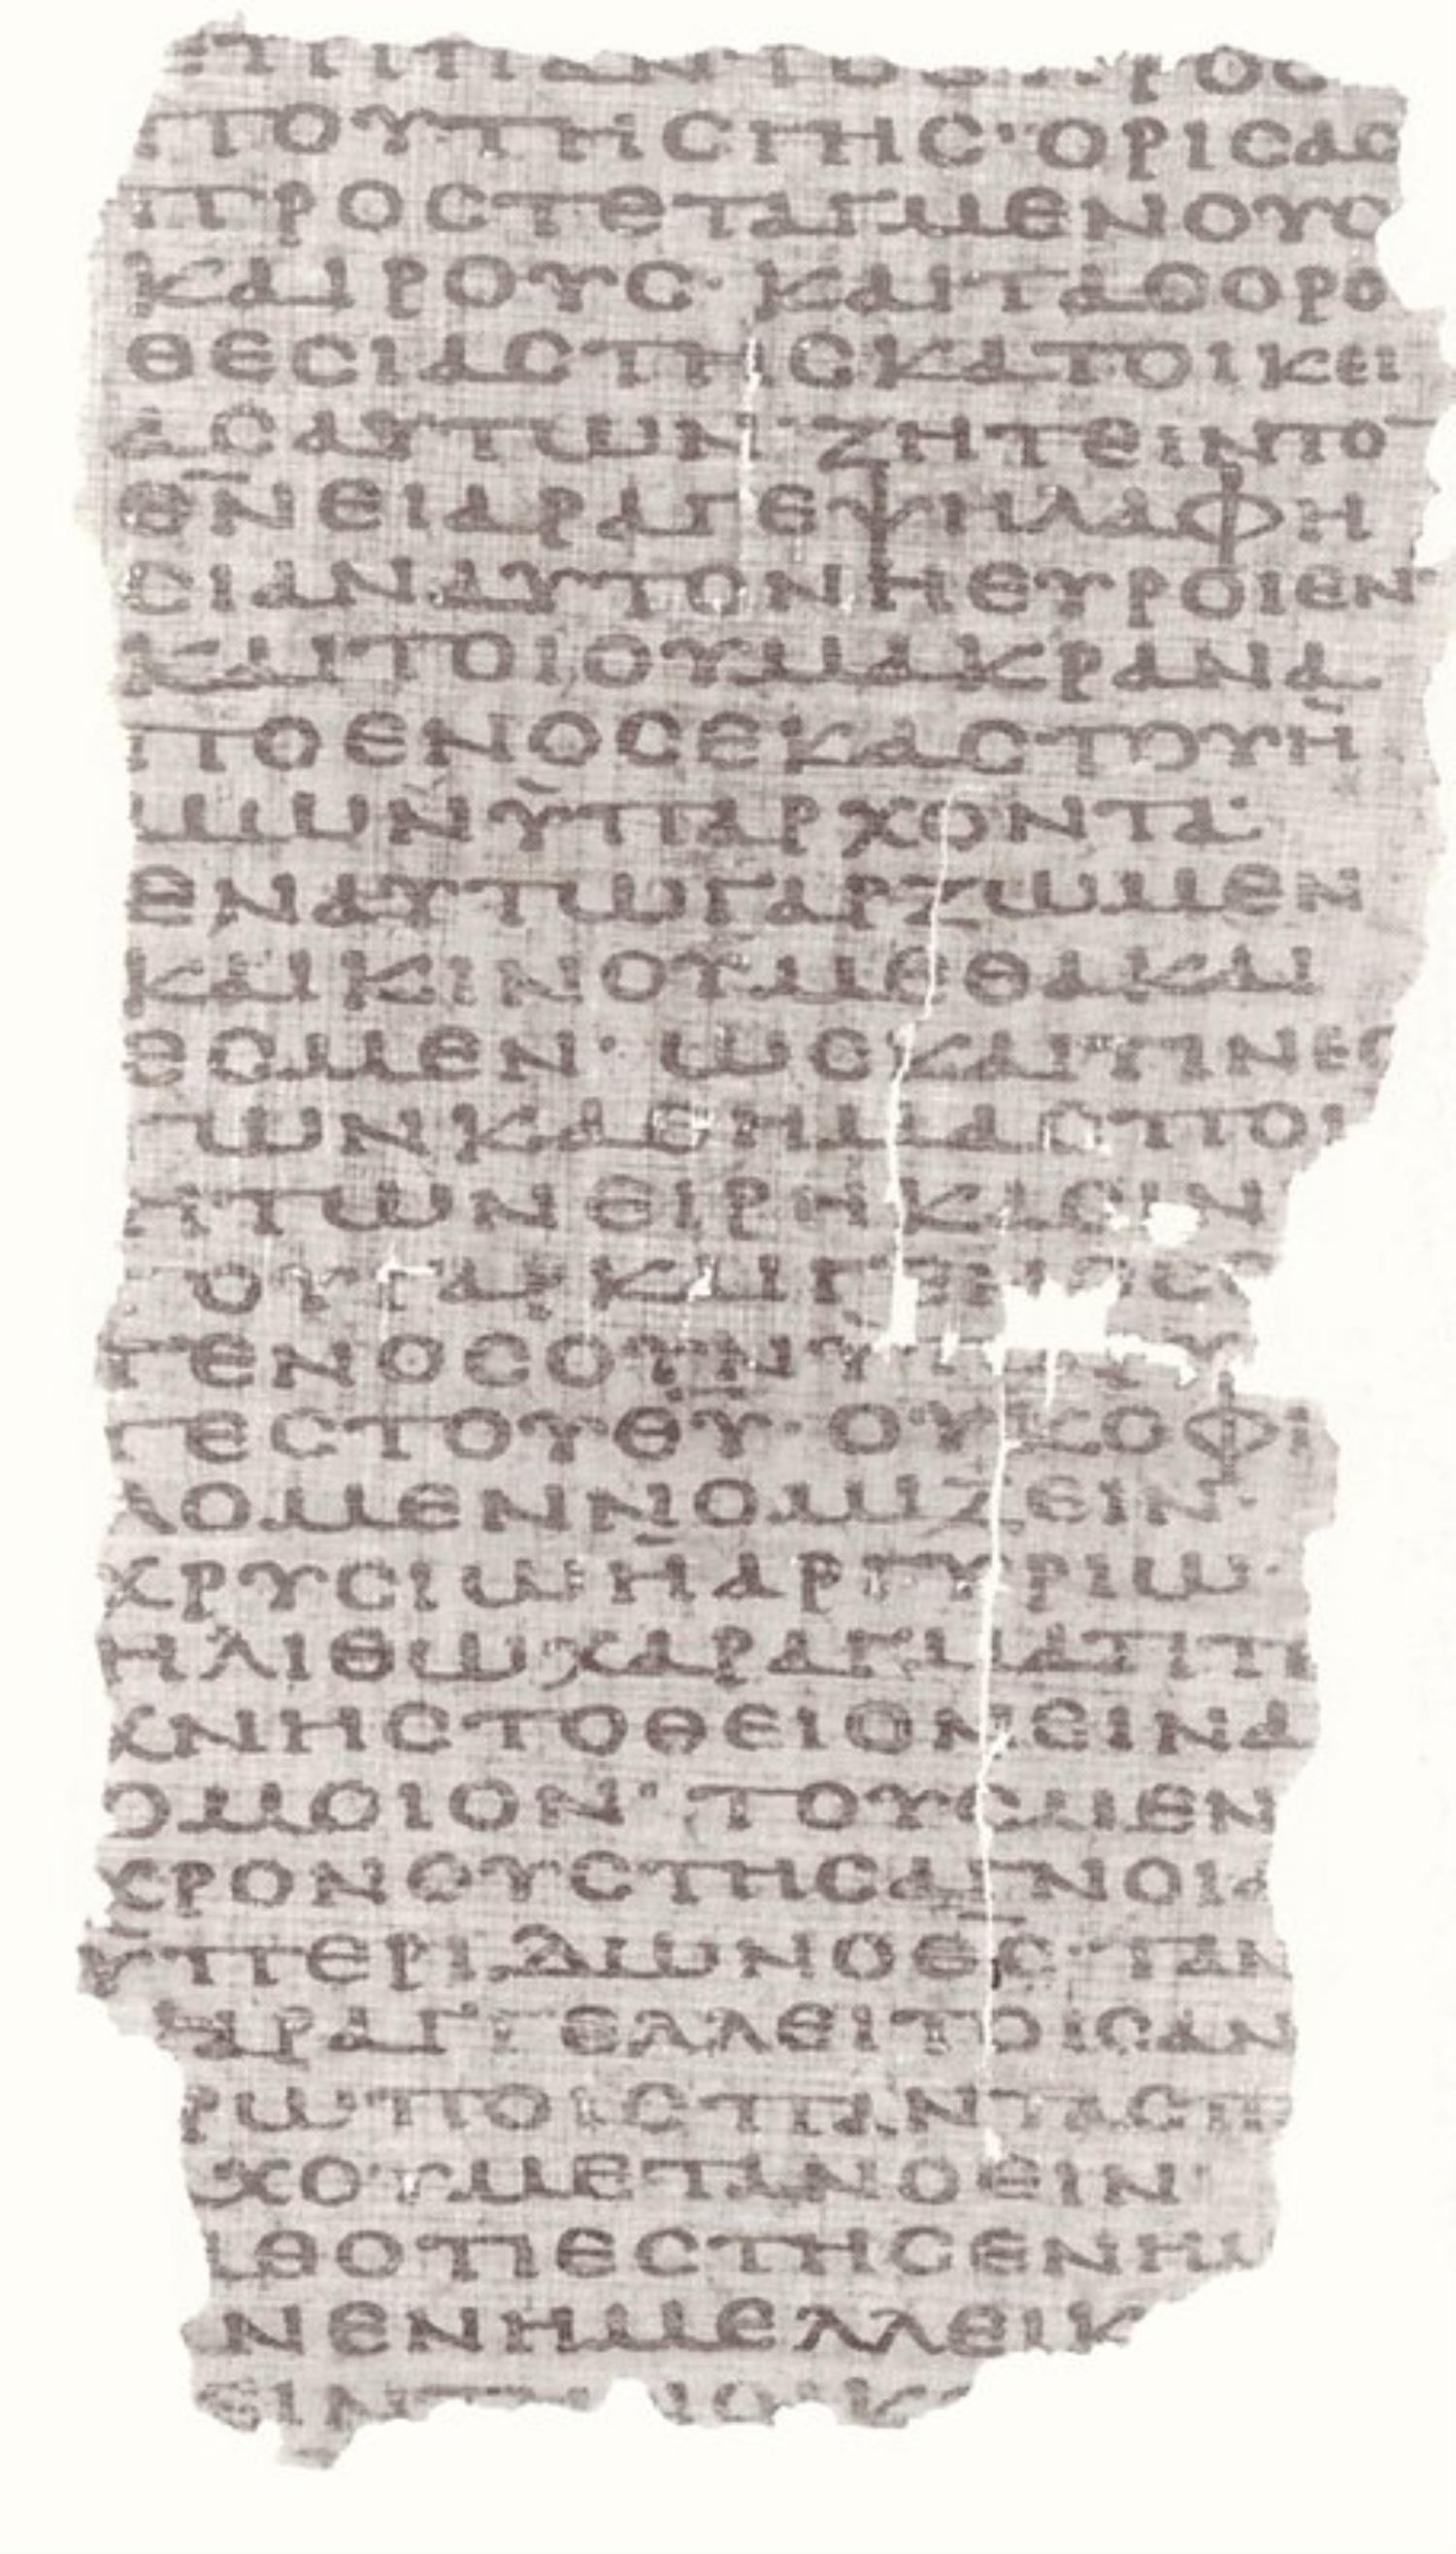 ΕΠΙΠΑΝΤΟΣ ΠΡΟΣ
ΠΟΥΤΗΣΓΗΣ·ΟΡΙΣΑΣ
ΠΡΟΣΤΕΤΑΓΜΕΝΟΥΣ
ΚΑΙΡΟΥΣ·ΚΑΙΤΑΣΟΡΟ
ΘΕΣΙΑΣΤΗΣΚΑΤΟΙΚΕΙ
ΑΣΑΥΤΩΝ·ΖΗΤΕΙΝΤΟ
Θ̅Ν̅ΕΙΑΡΑΓΕΨΗΛΑΦΗ
ΣΙΑΝΑΥΤΟΝΗΕΥΡΟΙΕΝ·
ΚΑΙΤΟΙΟΥΜΑΚΡΑΝΑ
ΠΟΕΝΟΣΕΚΑΣΤΟΥΗ
ΜΩΝΫΠΑΡΧΟΝΤΑ·
ΕΝΑΥΤΩΓΑΡΖΩΜΕΝ
ΚΑΙΚΙΝΟΥΜΕΘΑΚΑΙ
ΕΣΜΕΝ·ΩΣΚΑΙΤΙΝΕΣ
ΤΩΝΚΑΘΗΜΑΣΠΟΙ
ΗΤΩΝΕΙΡΗΚΑΣΙΝ
ΤΟΥΓΑΡΚΑΙΓΕΝΟΣΕΣ
ΓΕΝΟΣΟΥΝΥΠΑΡΧΟΝ
ΤΕΣΤΟΥΘ̅Υ̅·ΟΥΚΟΦΙ
ΛΟΜΕΝΝΟΜΙΖΕΙΝ·
ΧΡΥΣΙΩΗΑΡΓΥΡΙΩ·
ΗΛΙΘΩΧΑΡΑΓΜΑΤΙΤΕ
ΧΝΗΣΤΟΘΕΙΟΝΕΙΝΑ
ΟΜΟΙΟΝ·ΤΟΥΣΜΕΝ
ΧΡΟΝΟΥΣΤΗΣΑΓΝΟΙΑ
ΫΠΕΡΙΔΩΝΟΘ̅Σ̅·ΤΑΝ
ΠΑΡΑΓΓΕΛΛΕΙΤΟΙΣΑΝ
ΡΩΠΟΙΣΠΑΝΤΑΣΠΑ
ΑΧΟΥΜΕΤΑΝΟΕΙΝ·
ΑΘΟΤΙΕΣΤΗΣΕΝΗΜ
ΑΝΕΝΗΜΕΛΛΕΙΚ
ΕΙΝ